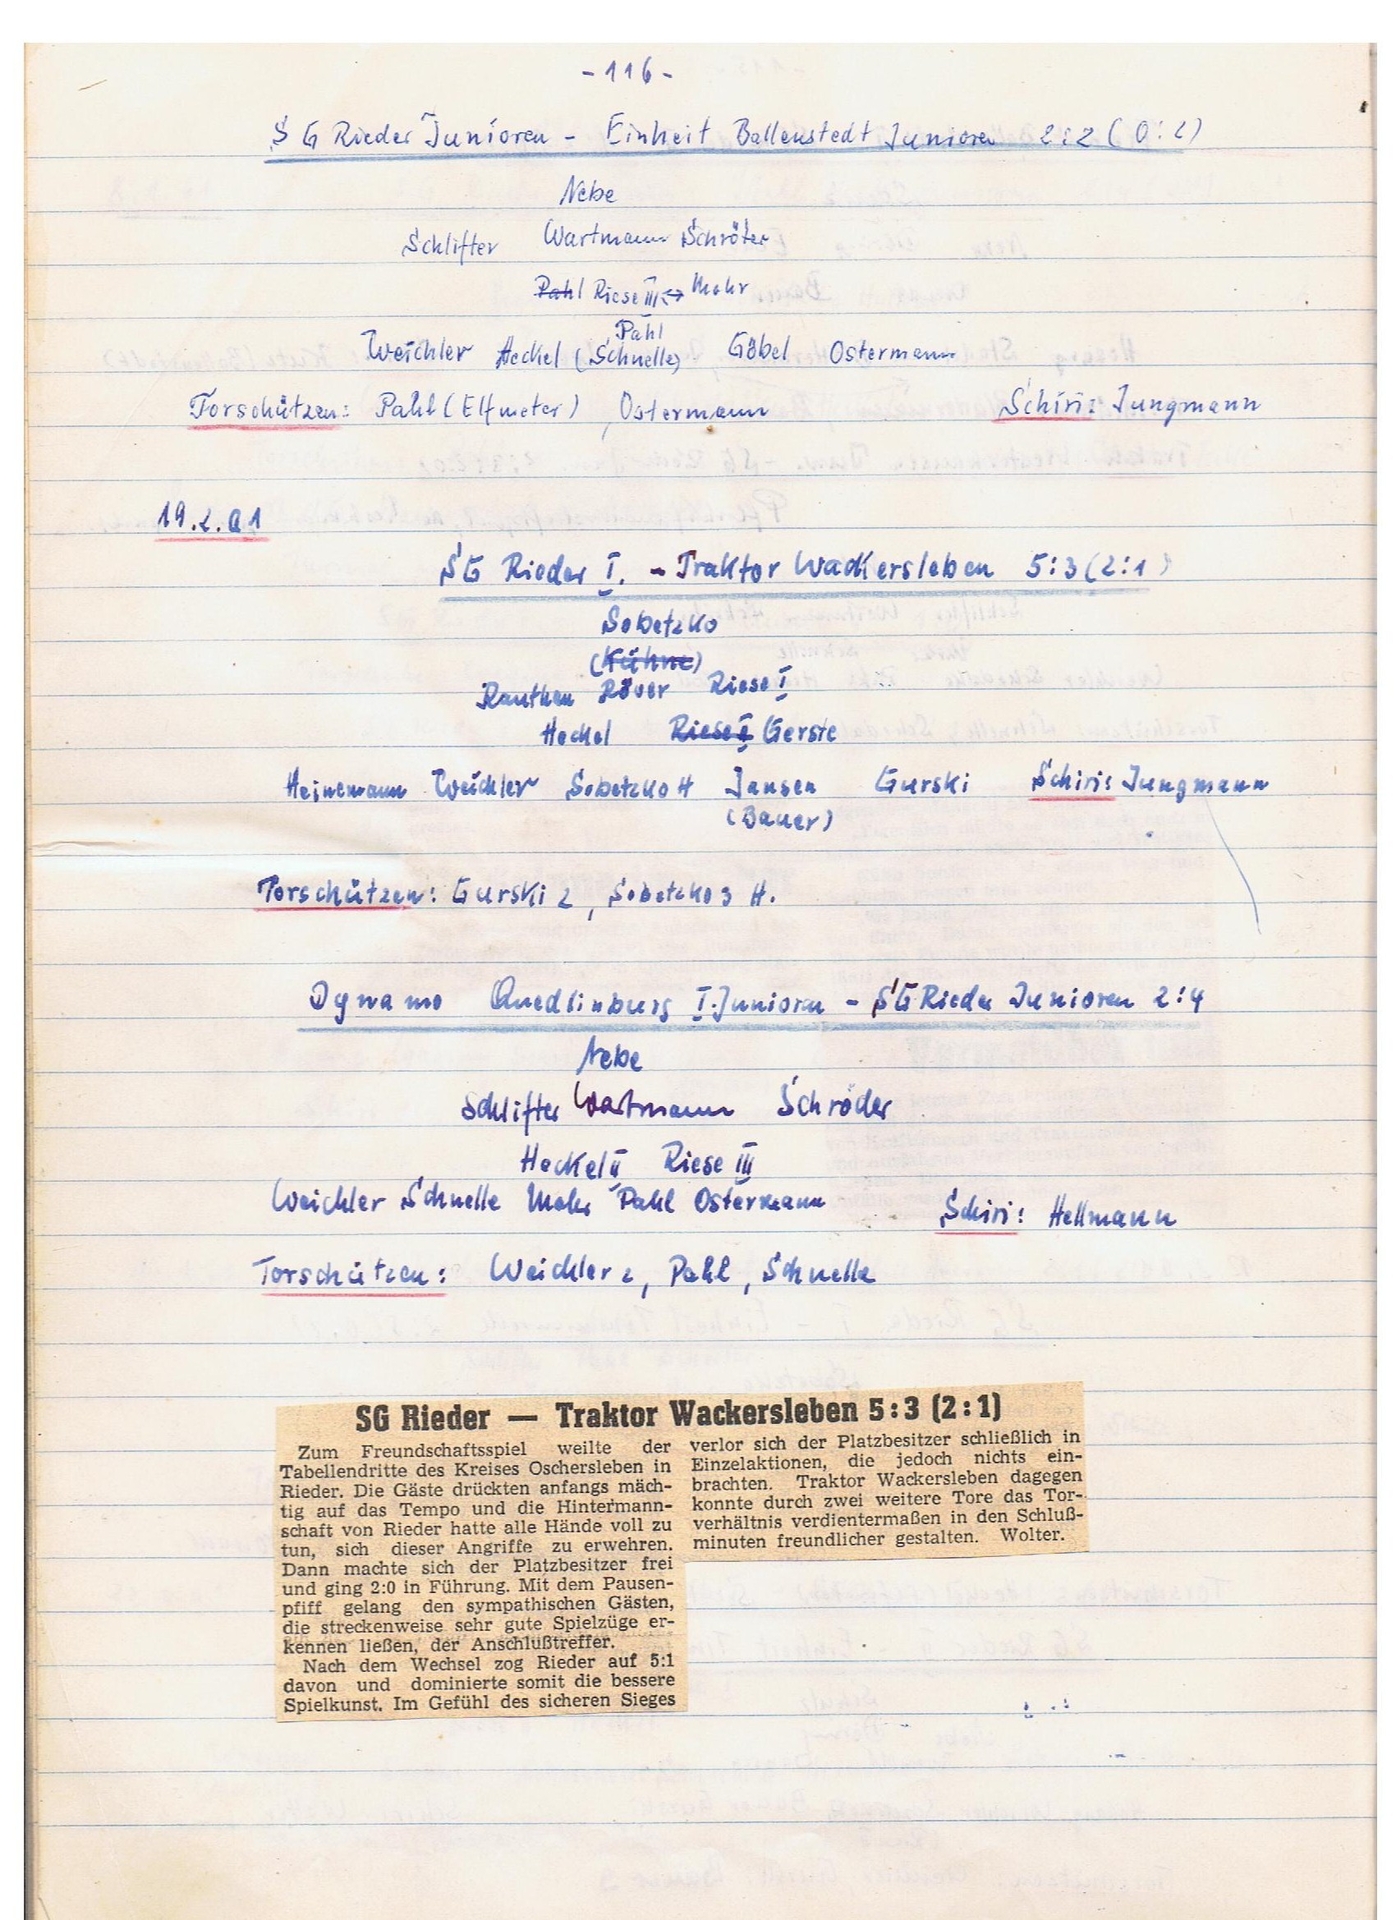 - 116 -
SG Rieder Junioren - Einheit Ballenstedt Junioren 2:2 (0:2)
Nebe
Schlifter Wartmann Schröter
Pahl Riese III ↔ Mohr
Pahl
Weichler Heckel (Schnelle) Göbel Ostermann
Torschützen: Pahl (Elfmeter), Ostermann Schiri: Jungmann
19.2.
SG Rieder I. - Traktor Wackersleben 5:3 (2:1)
Sobetzko
(Kühne)
Rauthen Röver Riese I
Heckel Riese II Gerste
Heinemann Weichler Sobetzko H Jansen Gurski Schiri: Jungmann
(Bauer)
Torschützen: Gurski 2, Sobetzko 3 H.
Dynamo Quedlinburg I. Junioren - SG Rieder Junioren 2:4
Nebe
Schlifter Wartmann Schröder
Heckel II Riese III
Weichler Schnelle Mohr Pahl Ostermann Schiri: Hellmann
Torschützen: Weichler 2, Pahl, Schnelle
SG Rieder — Traktor Wackersleben 5:3 (2:1)
Zum Freundschaftsspiel weilte der
Tabellendritte des Kreises Oschersleben in
Rieder. Die Gäste drückten anfangs mäch-
tig auf das Tempo und die Hintermann-
schaft von Rieder hatte alle Hände voll zu
tun, sich dieser Angriffe zu erwehren.
Dann machte sich der Platzbesitzer frei
und ging 2:0 in Führung. Mit dem Pausen-
pfiff gelang den sympathischen Gästen,
die streckenweise sehr gute Spielzüge er-
kennen ließen, der Anschlußtreffer.
Nach dem Wechsel zog Rieder auf 5:1
davon und dominierte somit die bessere
Spielkunst. Im Gefühl des sicheren Sieges
verlor sich der Platzbesitzer schließlich in
Einzelaktionen, die jedoch nichts ein-
brachten. Traktor Wackersleben dagegen
konnte durch zwei weitere Tore das Tor-
verhältnis verdientermaßen in den Schluß-
minuten freundlicher gestalten. Wolter.